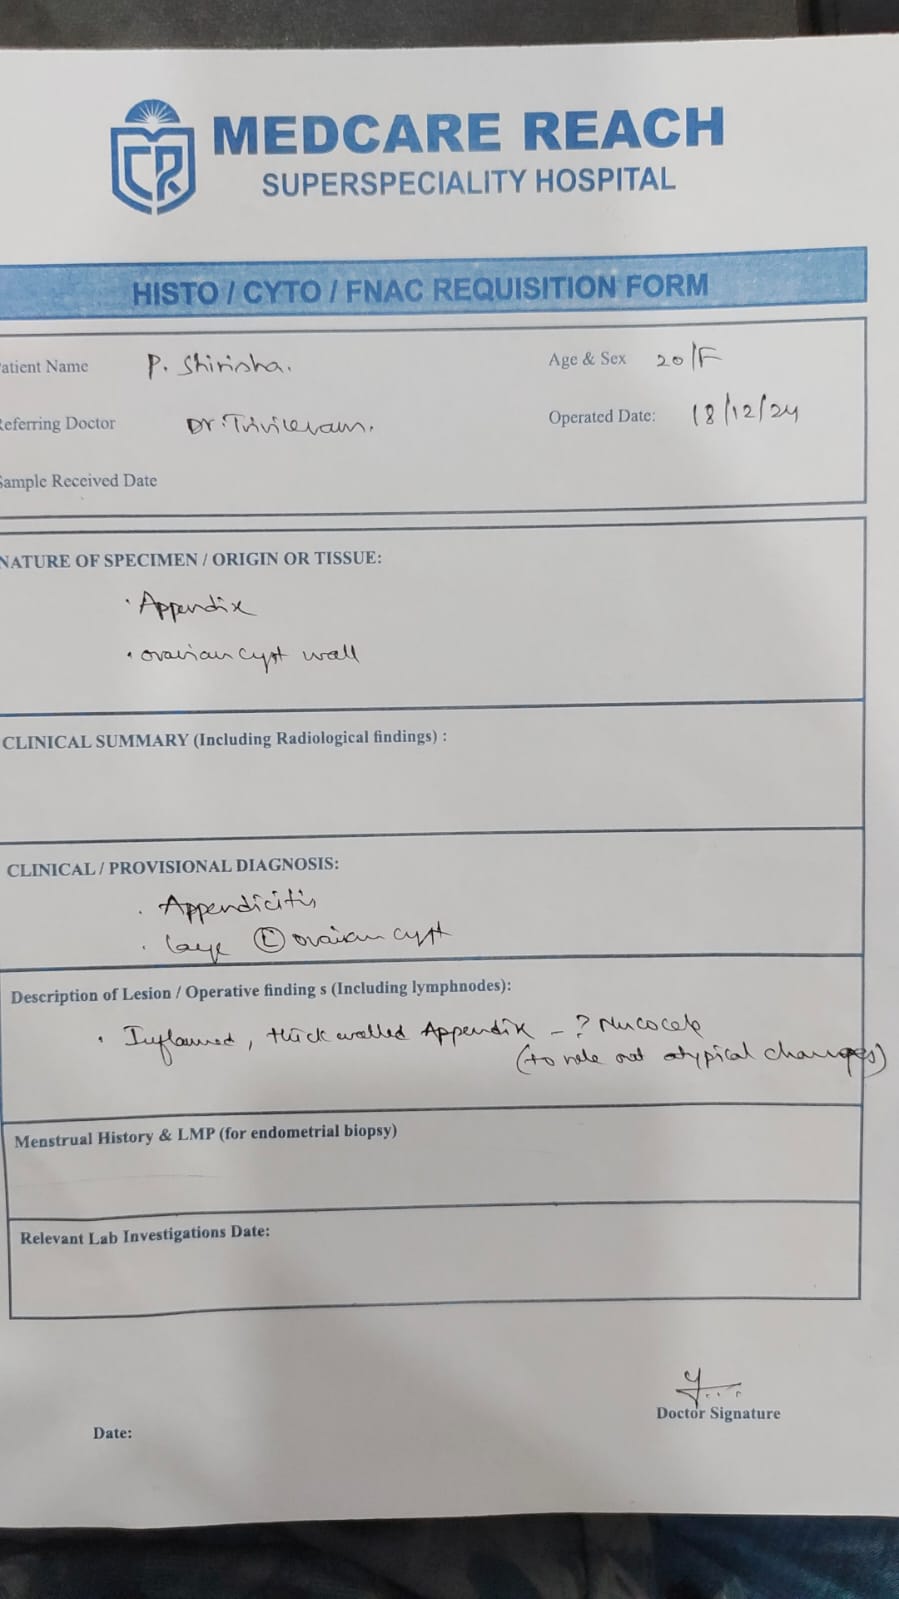 MEDCARE REACH
SUPERSPECIALITY HOSPITAL
HISTO / CYTO / FNAC REQUISITION FORM
atient Name P. Shirisha. Age & Sex 20/F
Referring Doctor Dr. Operated Date: 18/12/24
Sample Received Date
NATURE OF SPECIMEN / ORIGIN OR TISSUE:
• Appendix
• ovarian cyst wall
CLINICAL SUMMARY (Including Radiological findings) :
CLINICAL / PROVISIONAL DIAGNOSIS:
• Appendicitis
• large ovarian cyst
Description of Lesion / Operative finding s (Including lymphnodes):
• Inflamed, thick walled Appendix - ? Mucocele
(to rule out atypical changes)
Menstrual History & LMP (for endometrial biopsy)
Relevant Lab Investigations Date:
Doctor Signature
Date: